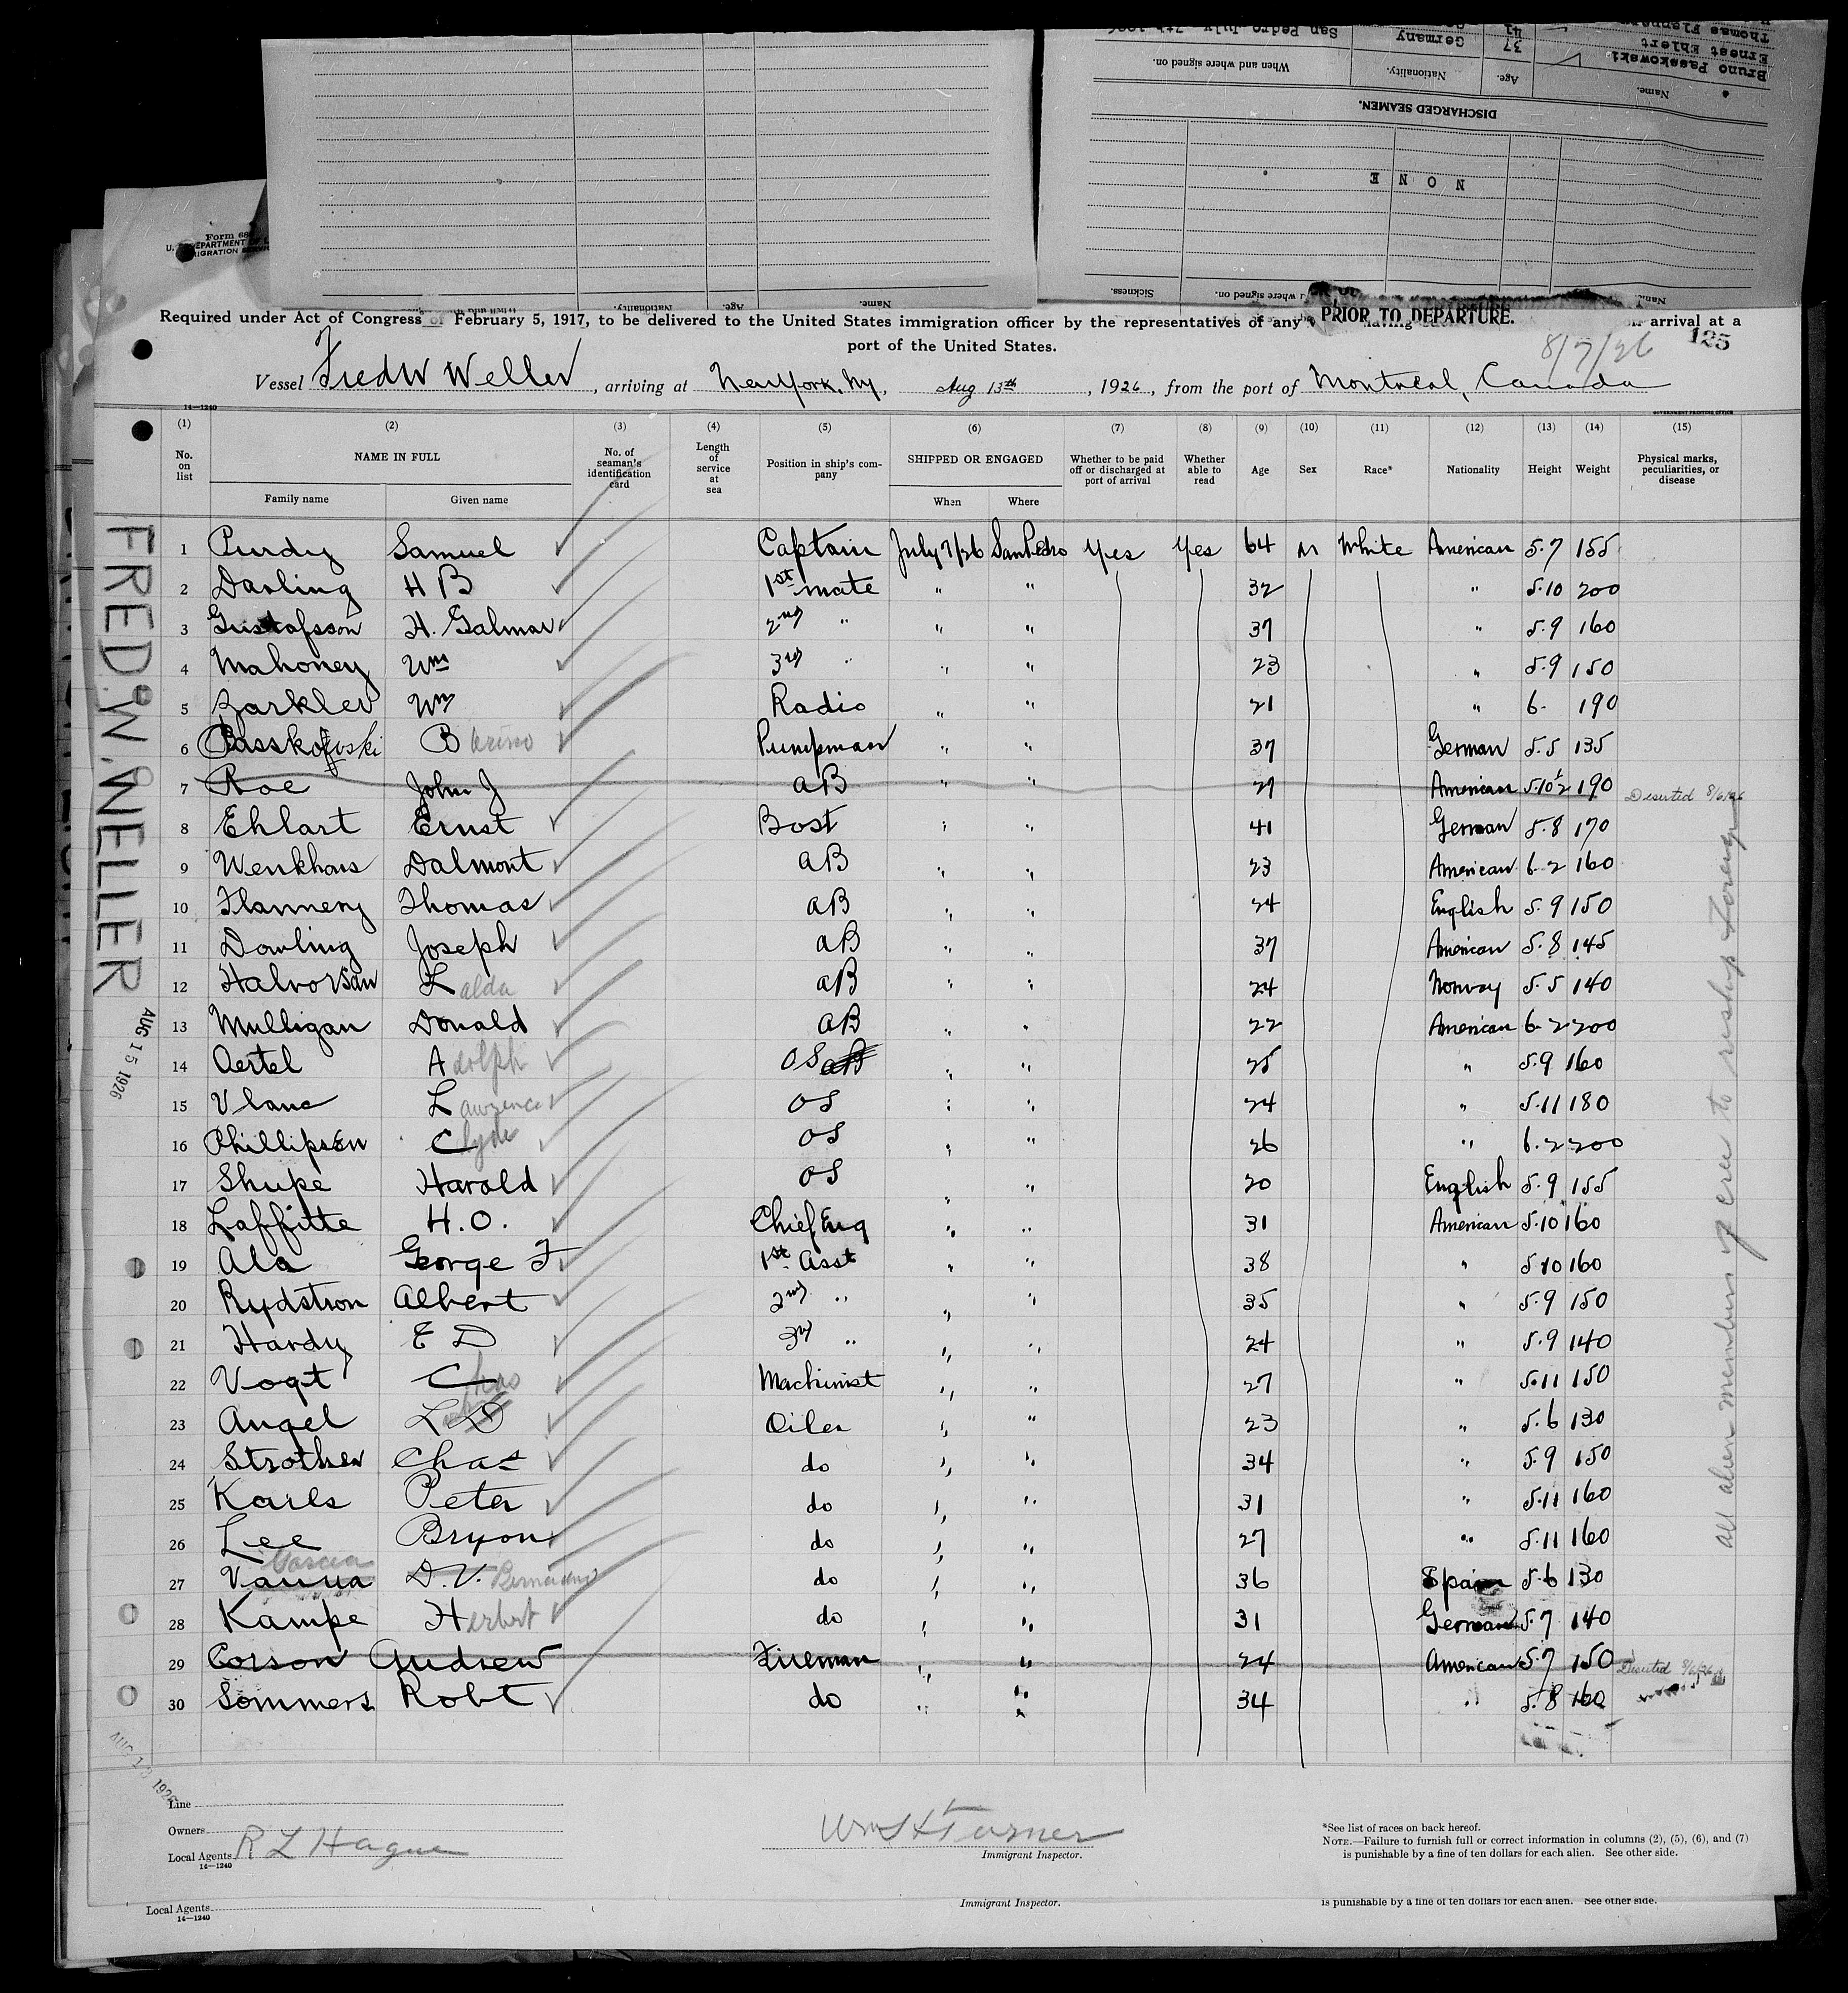 Bruno Passkowski
Ernest Ehlert
Thomas Flannery
37
41
Germany
San Pedro July 7th 1926
Name.
Age.
Nationality.
When and where signed on.
DISCHARGED SEAMEN.
N O N E
Sickness.
Name.
Age.
Nationality.
Form 68
U. S. DEPARTMENT OF
IMMIGRATION SERVICE
Required under Act of Congress of February 5, 1917, to be delivered to the United States immigration officer by the representatives of any having arrival at a
PRIOR TO DEPARTURE.
port of the United States.
8/7/26
125
Vessel Fred W Weller, arriving at New York, Ny, Aug 13th, 1926, from the port of Montreal, Canada
14—1240
GOVERNMENT PRINTING OFFICE
(1) (2) (3) (4) (5) (6) (7) (8) (9) (10) (11) (12) (13) (14) (15)
No. on list NAME IN FULL No. of seaman's identification card Length of service at sea Position in ship's company SHIPPED OR ENGAGED Whether to be paid off or discharged at port of arrival Whether able to read Age Sex Race* Nationality Height Weight Physical marks, peculiarities, or disease
Family name Given name When Where
1 Purdy Samuel Captain July 7/26 San Pedro Yes Yes 64 M White American 5.7 155
2 Darling H B 1st mate " " 32 " 5.10 200
3 Gustafsson H. Galmar 2nd " " " 37 " 5.9 160
4 Mahoney Wm 3rd " " " 23 " 5.9 150
5 Zarkler Wm Radio " " 21 " 6. 190
6 Passkowski Bruno Pumpman " " 37 German 5.5 135
7 Roe John J AB " " 27 American 5.10½ 190 Deserted 8/6/26
8 Ehlart Ernst Bost " " 41 German 5.8 170
9 Wenkhous Dalmont AB " " 23 American 6.2 160
10 Flannery Thomas AB " " 24 English 5.9 150
11 Dowling Joseph AB " " 37 American 5.8 145
12 Halvorsan Lalda AB " " 24 Norway 5.5 140
13 Mulligan Donald AB " " 22 American 6.2 200
14 Oertel Adolph OS AB " " 25 " 5.9 160
15 Vlanc Lawrence OS " " 24 " 5.11 180
16 Phillipsen Clyde OS " " 26 " 6.2 200
17 Shupe Harold OS " " 20 English 5.9 155
18 Laffitte H.O. Chief Eng " " 31 American 5.10 160
19 Ala George F 1st Asst " " 38 " 5.10 160
20 Rydstron Albert 2nd " " " 35 " 5.9 150
21 Hardy E D 3rd " " " 24 " 5.9 140
22 Vogt Chas Machinist " " 27 " 5.11 150
23 Angel L Oiler " " 23 " 5.6 130
24 Strother Chas do " " 34 " 5.9 150
25 Karls Peter do " " 31 " 5.11 160
26 Lee Bryon do " " 27 " 5.11 160
Garcia
27 D.V. Bernardino do " " 36 Spain 5.6 130
28 Kampe Herbert do " " 31 German 5.7 140
29 Corson Andrew Fireman " " 24 American 5.7 150 Deserted 8/6/26
30 Sommers Robt do " " 34 " 5.8 160
FRED. W. WELLER
AUG 15 1926
all alien members of crew to reship foreign
AUG 13 1926
Line
Owners
Local Agents R L Hague
14—1240
Wm H Turner
Immigrant Inspector.
*See list of races on back hereof.
NOTE.—Failure to furnish full or correct information in columns (2), (5), (6), and (7)
is punishable by a fine of ten dollars for each alien. See other side.
Local Agents
14—1240
Immigrant Inspector.
is punishable by a fine of ten dollars for each alien. See other side.